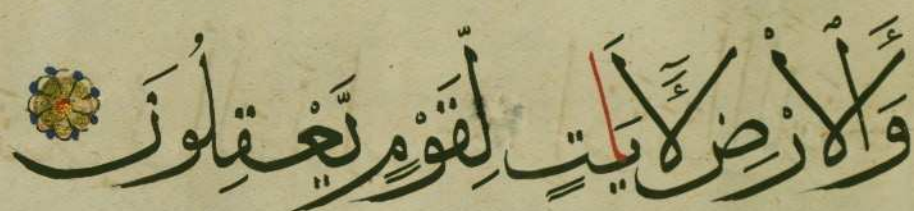 وَالْأَرْضِ لَأٓيَاتٍ لِّقَوْمٍ يَّعْقِلُونَ